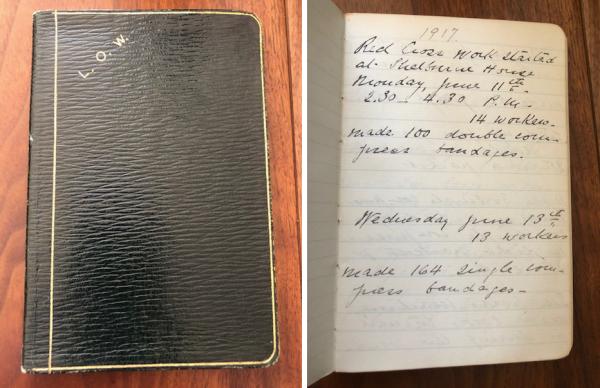 L. O. W.
1917.
Red Cross Work started
at Shelburne House
Monday, June 11th
2.30 - 4.30 P.M.
14 workers.
made 100 double com-
press bandages.
Wednesday June 13th
13 workers
made 164 single com-
press bandages -